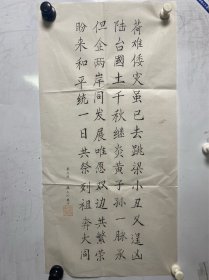 荷难倭灾虽已去跳梁小丑又逞凶
陆台國土千秋继炎黄子孙一脉承
但企两岸同发展唯愿双边共繁荣
盼来和平统一日共祭列祖奔大同